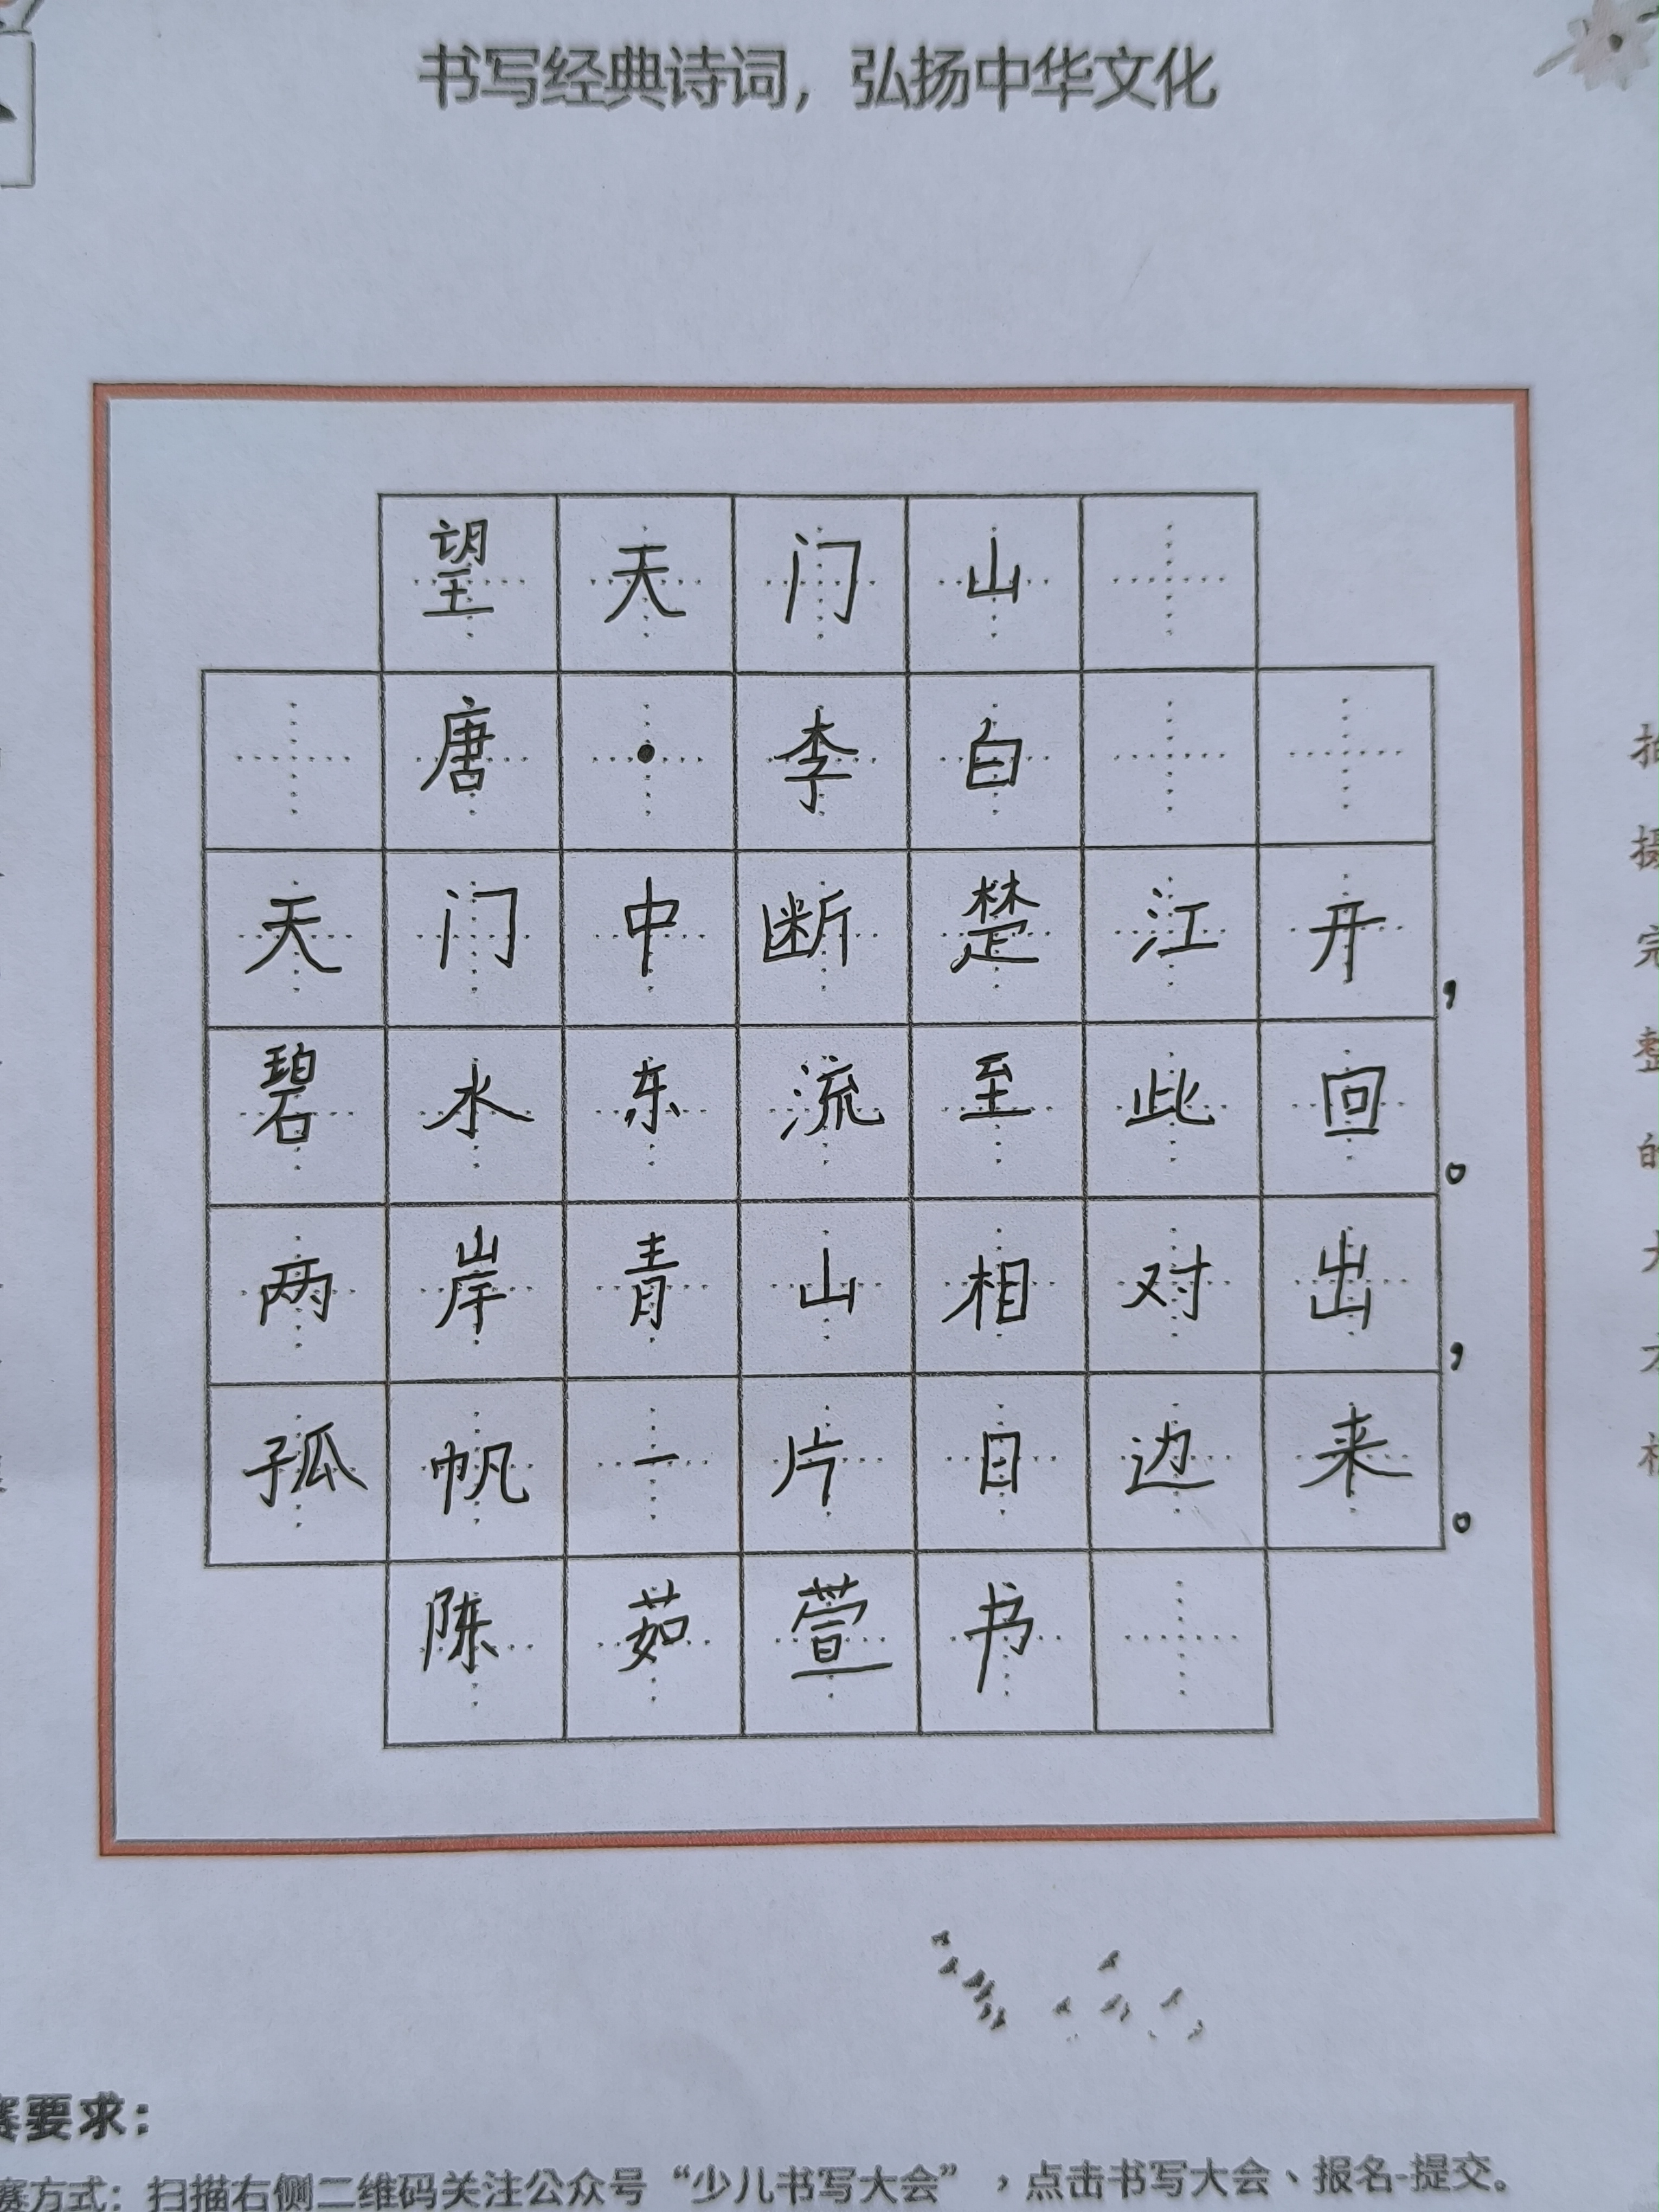 书写经典诗词，弘扬中华文化
望天门山
唐·李白
天门中断楚江开，
碧水东流至此回。
两岸青山相对出，
孤帆一片日边来。
陈茹萱书
拍摄完整的
赛要求：
赛方式：扫描右侧二维码关注公众号“少儿书写大会”，点击书写大会、报名-提交。